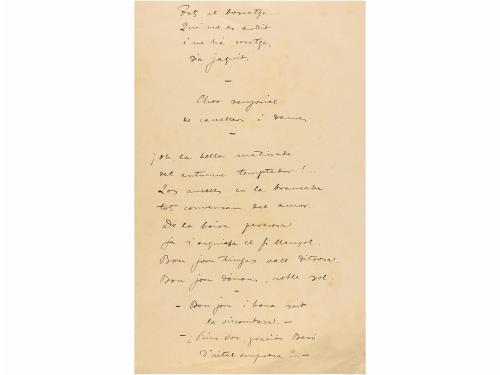 Tot el boscatge...
Qui no es ardit
i no hà coratge,
sia jaquit.
—
Chor senyorial
de cavallers i dames
—
¡Oh, la bella matinada
del autumne temptador!...
Los aucells en la brancada
tot conversan del amor.
De la boira peresosa
ja s'esquinsa el fi llençol.
Bon jorn tingas vall ditxosa.
Bon jorn dónans, noble sol.
— Bon jorn i bona sort
la vicomtesa. —
— ¿Sou vos, graciós Baró
D'aital empresa?... —